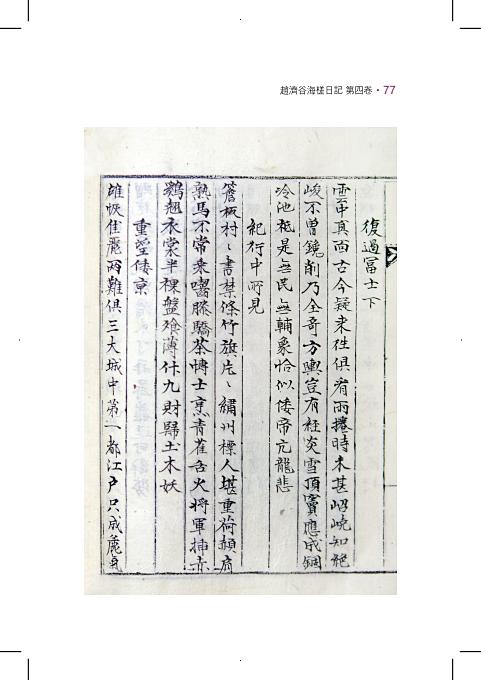 趙濟谷海槎日記 第四卷 • 77
復過冨士下
雲中眞面古今疑来徃俱看雨捲時未甚岧嶢知絶
峻不曽鐫削乃全奇方輿豈有経炎雪頂竇應成錮
冷池秪是無民無輔象恰似倭帝亢龍悲
紀行中所見
簷板村〻書禁條竹旗片〻繡川標人堪重荷頳肩
熟馬不常乗囓膝驕茶博士烹青雀舌火将軍挿赤
鷄翹衣裳半裸盤飱薄什九財歸土木妖
重望倭京
雄恢佳麗兩難俱三大城中第一都江户只成麤気